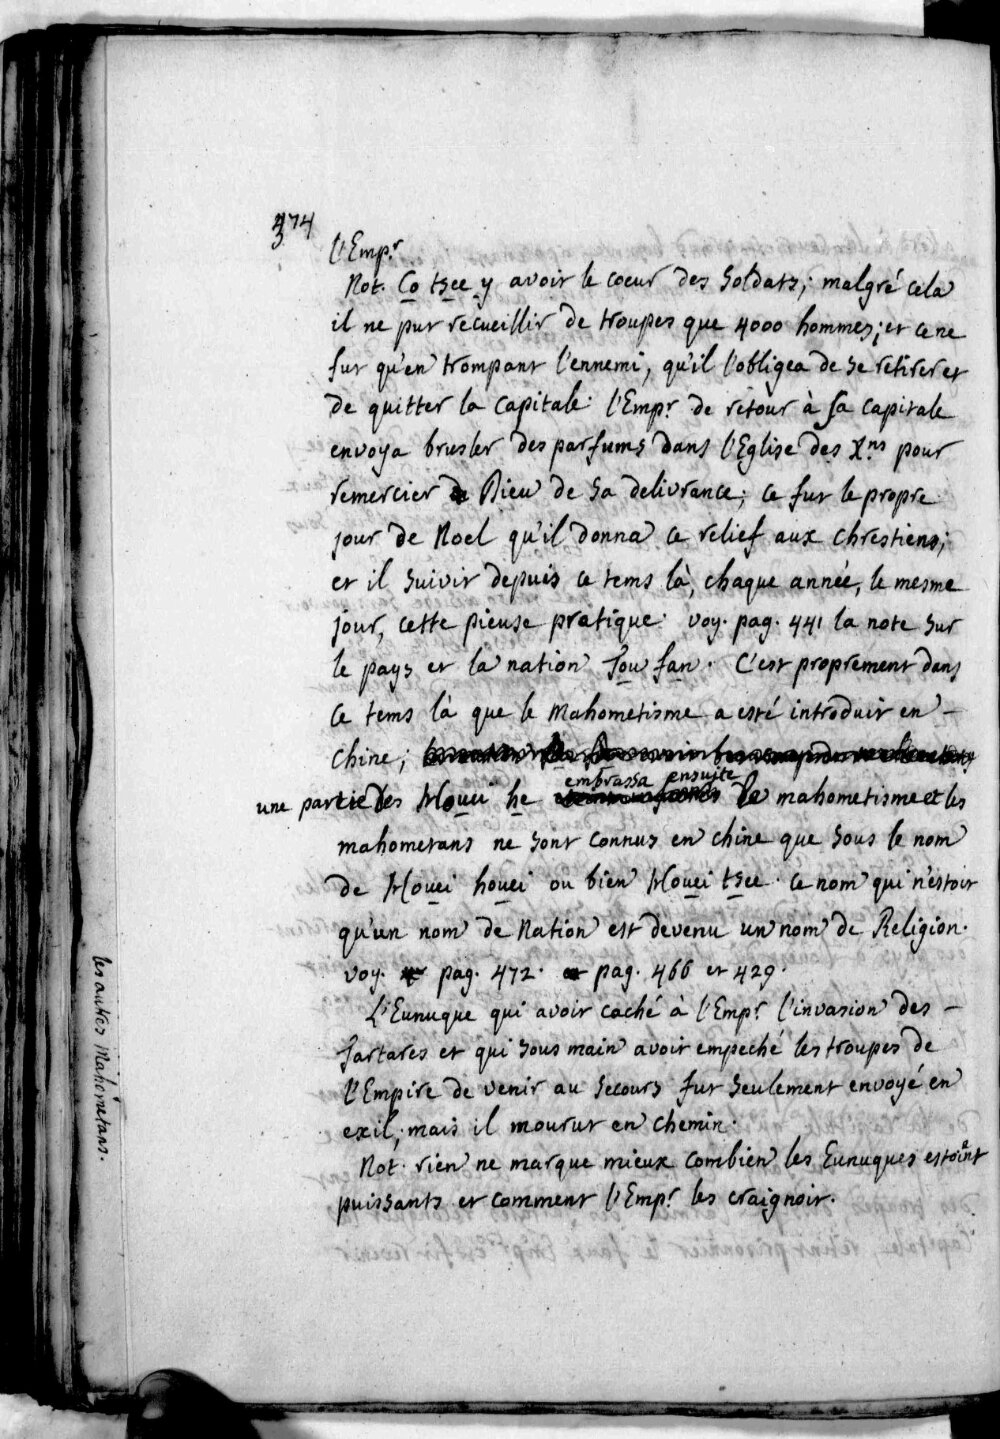 474
l'Emp.r
Not. Co tsee y avoit le coeur des soldats; malgré cela
il ne put recueillir de troupes que 4000 hommes; et ce ne
fut qu'en trompant l'ennemi, qu'il l'obligea de se retirer et
de quitter la capitale. l'Emp.r de retour à sa capitale
envoya brusler des parfums dans l'Eglise des X.ns pour
remercier Dieu de sa delivrance; ce fut le propre
jour de Noel qu'il donna ce relief aux chrestiens;
et il suivit depuis ce tems là, chaque année, le mesme
jour, cette pieuse pratique. voy. pag. 441 la note sur
le pays et la nation Tou fan. C'est proprement dans
ce tems là que le Mahometisme a esté introduit en -
chine;
embrassa ensuite
une partie des Houei he le mahometisme et les
mahometans ne sont connus en chine que sous le nom
de Houei houei ou bien Houei tsee. ce nom qui n'estoit
qu'un nom de Nation est devenu un nom de Religion.
voy. pag. 472. pag. 466 et 429.
L'Eunuque qui avoit caché à l'Emp.r l'invasion des -
Tartares et qui sous main avoit empeché les troupes de
l'Empire de venir au secours fut seulement envoyé en
exil; mais il mourut en chemin.
Not. rien ne marque mieux combien les Eunuques estoient
puissants et comment l'Emp.r les craignoit.
les autres Mahometans.